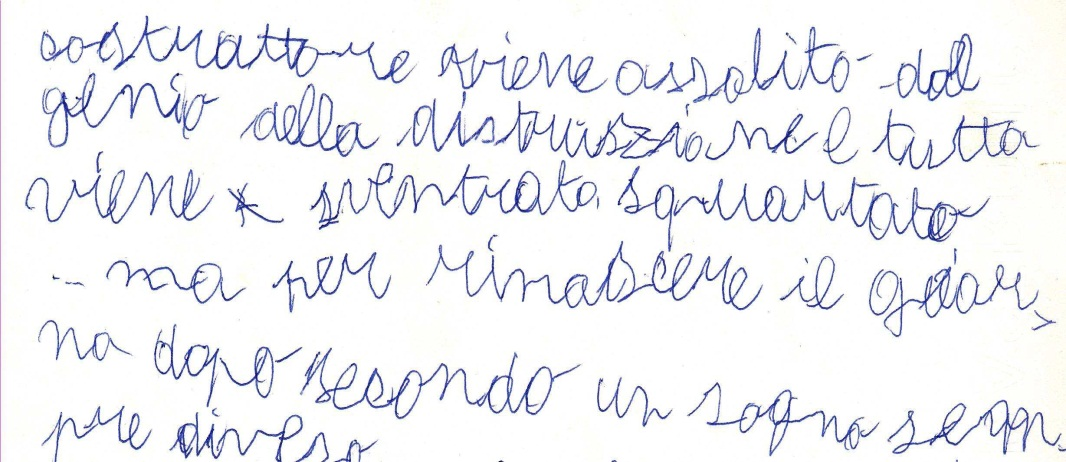 costruttore viene assalito dal
genio della distruzione e tutto
viene sventrato, squartato
... ma per rinascere il gior,
no dopo secondo un sogno sem,
pre diverso